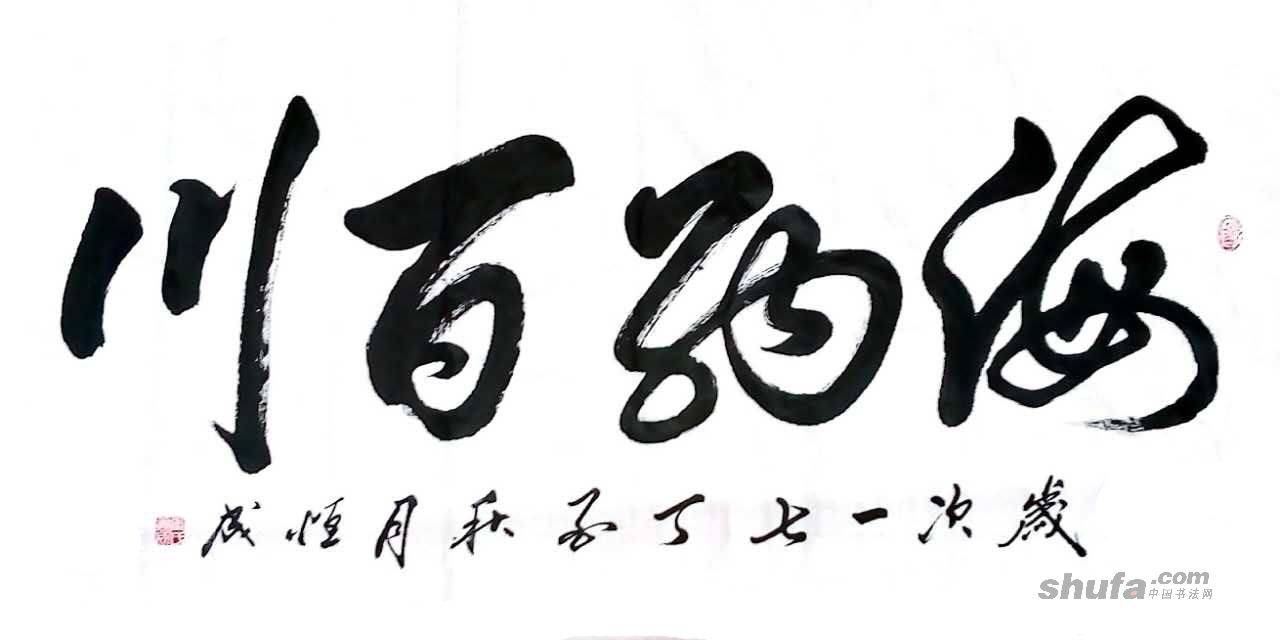 海纳百川
岁次一七丁酉秋月恒成
shufa.com
中国书法网